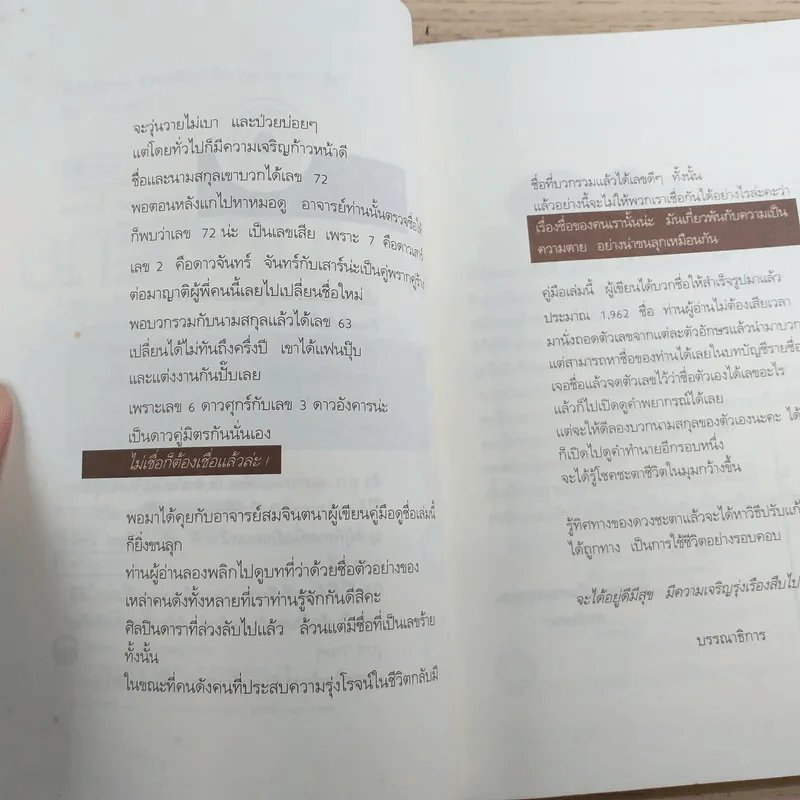 จะวุ่นวายไม่เบา และป่วยบ่อยๆ
แต่โดยทั่วไปก็มีความเจริญก้าวหน้าดี
ชื่อและนามสกุลเขาบวกได้เลข 72
พอตอนหลังแกไปหาหมอดู อาจารย์ท่านนั้นตรวจชื่อให้
ก็พบว่าเลข 72 น่ะ เป็นเลขเสีย เพราะ 7 คือดาวเสาร์
เลข 2 คือดาวจันทร์ จันทร์กับเสาร์น่ะเป็นคู่พรากคู่ร้าง
ต่อมาญาติผู้พี่คนนี้เลยไปเปลี่ยนชื่อใหม่
พอบวกรวมกับนามสกุลแล้วได้เลข 63
เปลี่ยนได้ไม่ทันถึงครึ่งปี เขาได้แฟนปุ๊บ
และแต่งงานกันปั๊บเลย
เพราะเลข 6 ดาวศุกร์กับเลข 3 ดาวอังคารน่ะ
เป็นดาวคู่มิตรกันนั่นเอง
ไม่เชื่อก็ต้องเชื่อแล้วล่ะ !
พอมาได้คุยกับอาจารย์สมจินตนาผู้เขียนคู่มือดูชื่อเล่มนี้
ก็ยิ่งขนลุก
ท่านผู้อ่านลองพลิกไปดูบทที่ว่าด้วยชื่อตัวอย่างของ
เหล่าคนดังทั้งหลายที่เราท่านรู้จักกันดีสิคะ
ศิลปินดาราที่ล่วงลับไปแล้ว ล้วนแต่มีชื่อที่เป็นเลขร้าย
ทั้งนั้น
ในขณะที่คนดังคนที่ประสบความรุ่งโรจน์ในชีวิตกลับมี
ชื่อที่บวกรวมแล้วได้เลขดีๆ ทั้งนั้น
แล้วอย่างนี้จะไม่ให้พวกเราเชื่อกันได้อย่างไรล่ะคะว่า
เรื่องชื่อของคนเรานั้นน่ะ มันเกี่ยวพันกับความเป็น
ความตาย อย่างน่าขนลุกเหมือนกัน
คู่มือเล่มนี้ ผู้เขียนได้บวกชื่อให้สำเร็จรูปมาแล้ว
ประมาณ 1,962 ชื่อ ท่านผู้อ่านไม่ต้องเสียเวลา
มานั่งถอดตัวเลขจากแต่ละตัวอักษรแล้วนำมาบวก
แต่สามารถหาชื่อของท่านได้เลยในบทบัญชีรายชื่อ
เจอชื่อแล้วจดตัวเลขไว้ว่าชื่อตัวเองได้เลขอะไร
แล้วก็ไปเปิดดูคำพยากรณ์ได้เลย
แต่จะให้ดีลองบวกนามสกุลของตัวเองนะคะ ได้
ก็เปิดไปดูคำทำนายอีกรอบหนึ่ง
จะได้รู้โชคชะตาชีวิตในมุมกว้างขึ้น
รู้ทิศทางของดวงชะตาแล้วจะได้หาวิธีปรับแก้
ได้ถูกทาง เป็นการใช้ชีวิตอย่างรอบคอบ
จะได้อยู่ดีมีสุข มีความเจริญรุ่งเรืองสืบไป
บรรณาธิการ